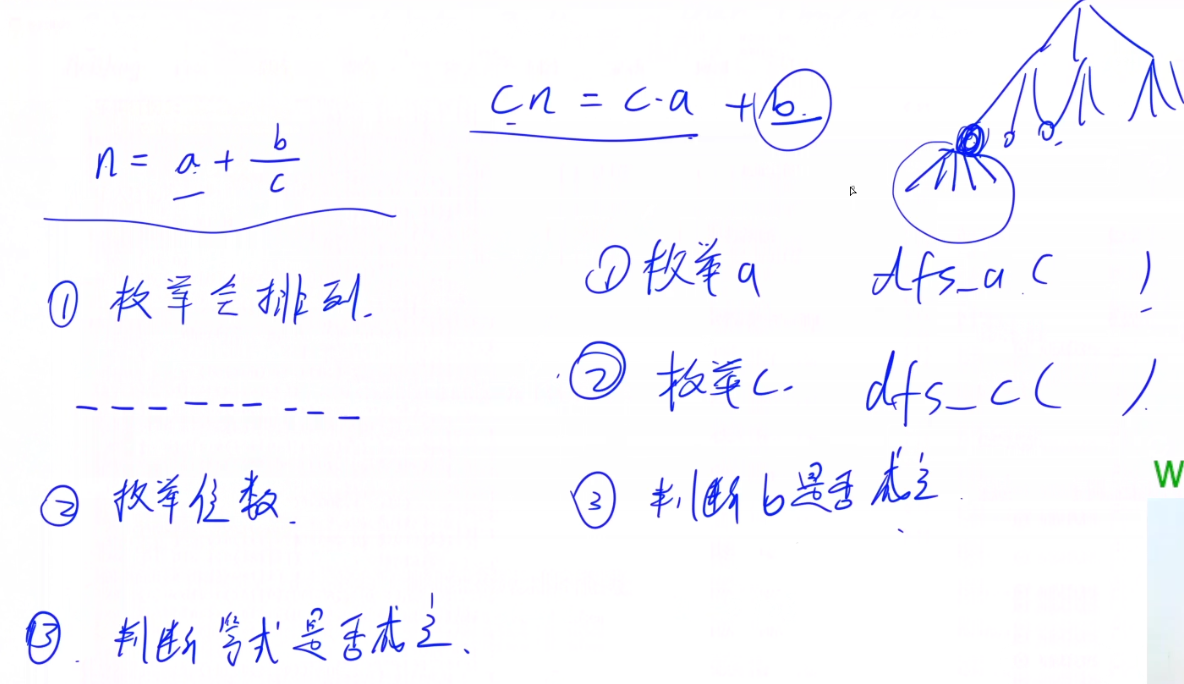 n = a + b/c
① 枚举全排列.
② 枚举位数.
③. 判断等式是否成立.
cn = c·a + b.
① 枚举a dfs_a ( )
② 枚举c. dfs_c ( )
③ 判断b是否成立.
W